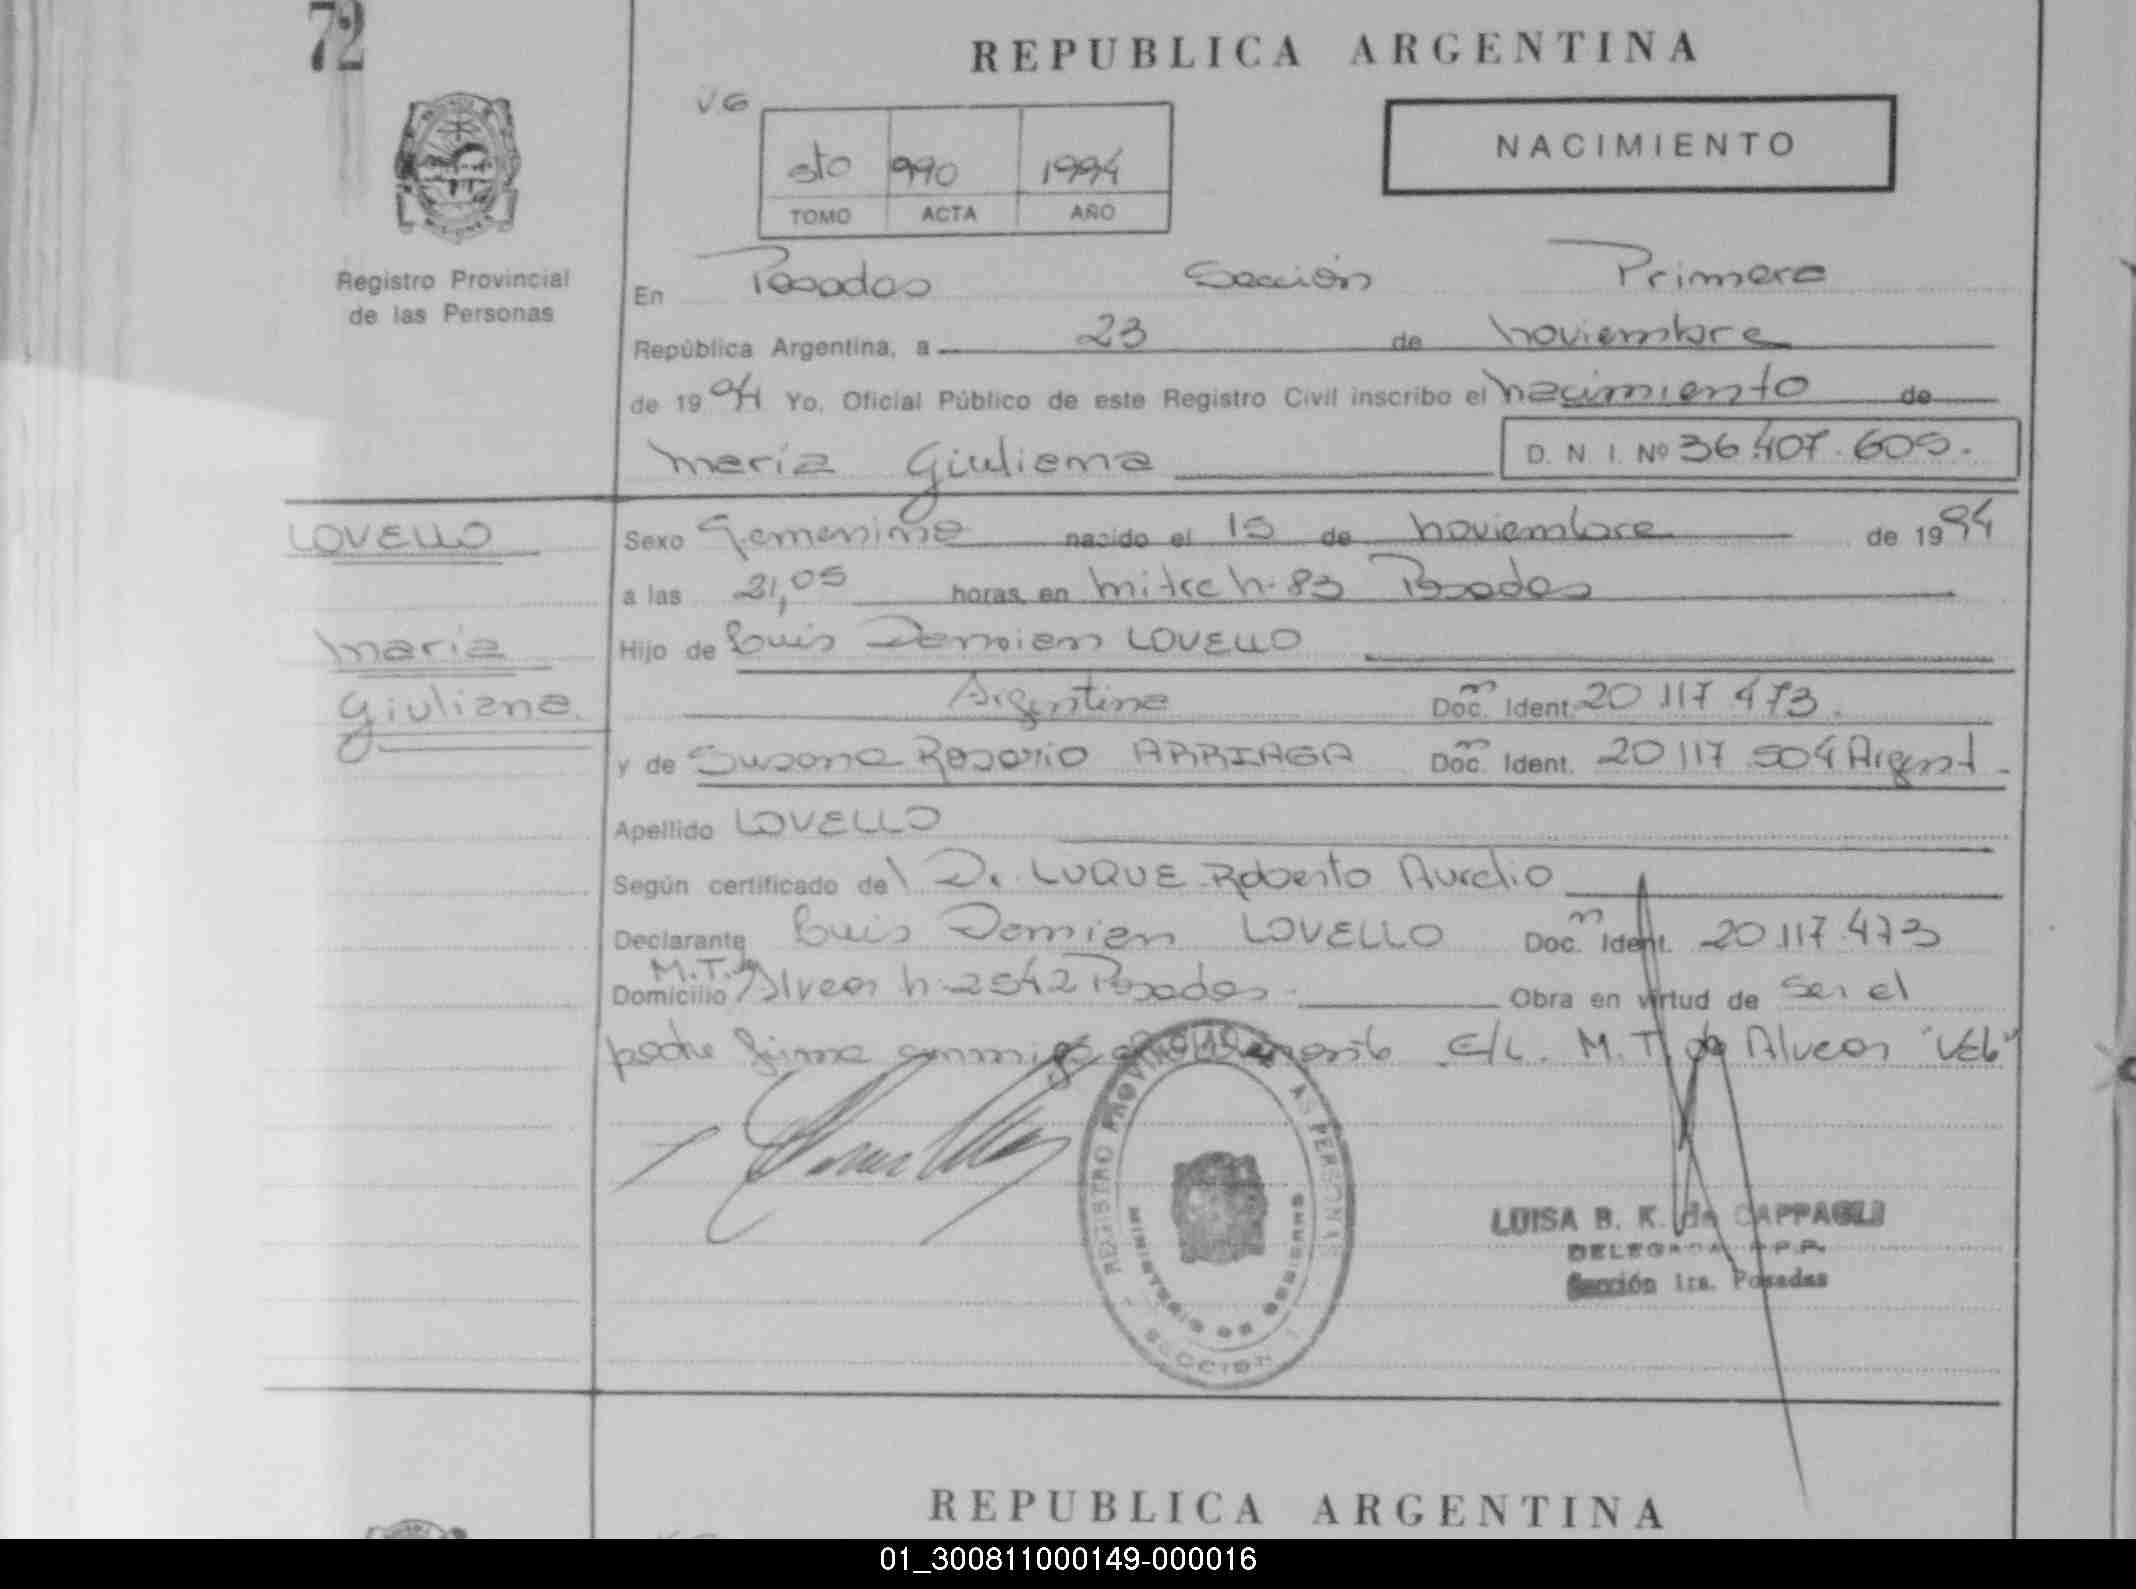 72
REPUBLICA ARGENTINA
V.G
NACIMIENTO
sto 990 1994
TOMO ACTA AÑO
Registro Provincial
de las Personas
En Posadas Sección Primera
República Argentina, a 23 de noviembre
de 1994 Yo, Oficial Público de este Registro Civil inscribo el nacimiento de
María Giuliana D. N. I. Nº 36.407.605.
LOVELLO
Sexo femenino nacido el 15 de noviembre de 1994
a las 21,05 horas en Mitre n. 83 Posadas
María
Hijo de Luis Damian LOVELLO
Giuliana
Argentina Doc. Ident. 20 117 473.
y de Susana Rosario ARRIAGA Doc. Ident. 20 117 504 Argent.
Apellido LOVELLO
Según certificado del Dr. LUQUE Roberto Aurelio
Declarante Luis Damian LOVELLO Doc. Ident. 20.117.473
Domicilio M.T. de Alvear n. 2542 Posadas. Obra en virtud de ser el
padre firma conmigo E/L. M.T. de Alvear "VEL"
REGISTRO PROVINCIAL DE LAS PERSONAS
MINISTERIO DE GOBIERNO
SECCION 1
LUISA B. K. de CAPPAGLI
DELEGADA R.P.P.
Sección 1ra. Posadas
REPUBLICA ARGENTINA
01_300811000149-000016